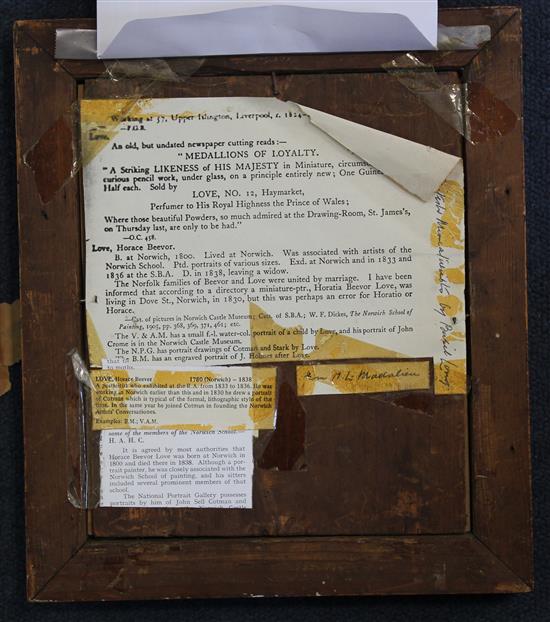 Working at 37, Upper Islington, Liverpool, c. 1824–
—F.G.R.
Love.
An old, but undated newspaper cutting reads:—
"MEDALLIONS OF LOYALTY.
"A Striking LIKENESS of HIS MAJESTY in Miniature,
curious pencil work, under glass, on a principle entirely new; One
Half each. Sold by
LOVE, NO. 12, Haymarket,
Perfumer to His Royal Highness the Prince of Wales;
Where those beautiful Powders, so much admired at the Drawing-Room, St. James's,
on Thursday last, are only to be had."
—O.C. 458.
Love, Horace Beevor.
B. at Norwich, 1800. Lived at Norwich. Was associated with artists of the
Norwich School. Ptd. portraits of various sizes. Exd. at Norwich and in 1833 and
1836 at the S.B.A. D. in 1838, leaving a widow.
The Norfolk families of Beevor and Love were united by marriage. I have been
informed that according to a directory a miniature-ptr., Horatia Beevor Love, was
living in Dove St., Norwich, in 1830, but this was perhaps an error for Horatio or
Horace.
—Cat. of pictures in Norwich Castle Museum; Cats. of S.B.A.; W. F. Dickes, The Norwich School of
Painting, 1905, pp. 368, 369, 371, 461; etc.
The V. & A.M. has a small f.-l. water-col. portrait of a child by Love, and his portrait of John
Crome is in the Norwich Castle Museum.
The N.P.G. has portrait drawings of Cotman and Stark by Love.
The B.M. has an engraved portrait of J. Holmes after Love.
LOVE, Horace Beevor 1780 (Norwich) – 1838
Portraitist who exhibited at the B.A. from 1833 to 1836. He was
working at Norwich earlier than this and in 1830 he drew a portrait
of Cotman which is typical of the formal, lithographic style of the
time. In the same year he joined Cotman in founding the Norwich
Artists' Conversaziones.
Examples: B.M.; V.A.M.
some of the members of the Norwich School.
H. A. H. C.
It is agreed by most authorities that
Horace Beevor Love was born at Norwich in
1800 and died there in 1838. Although a por-
trait painter, he was closely associated with the
Norwich School of painting, and his sitters
included several prominent members of that
school.
The National Portrait Gallery possesses
portraits by him of John Sell Cotman and